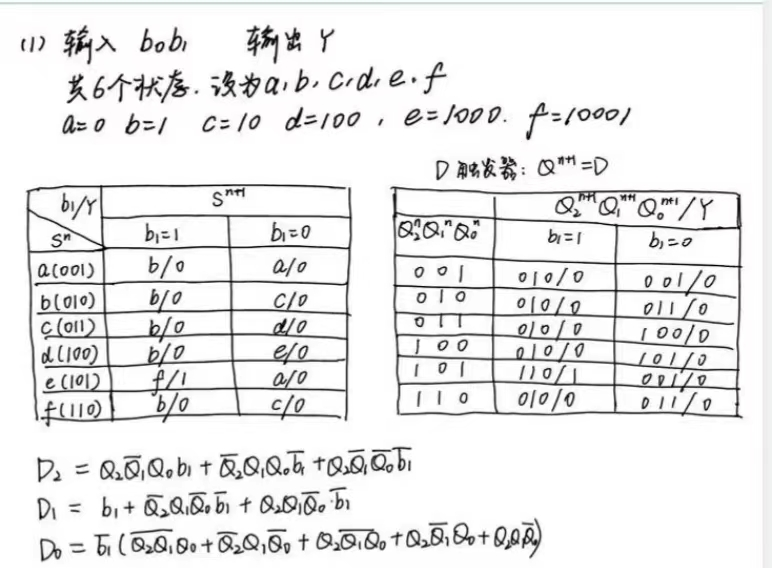 (1) 输入 b₀b₁ 输出 Y
共6个状态. 设为a, b, c, d, e. f
a=0 b=1 c=10 d=100 , e=1000. f=10001
D 触发器: Qⁿ⁺¹=D
b₁/Y Sⁿ⁺¹
Sⁿ b₁=1 b₁=0
a(001) b/0 a/0
b(010) b/0 c/0
c(011) b/0 d/0
d(100) b/0 e/0
e(101) f/1 a/0
f(110) b/0 c/0
Q₂ⁿ⁺¹Q₁ⁿ⁺¹Q₀ⁿ⁺¹/Y
Q₂ⁿQ₁ⁿQ₀ⁿ b₁=1 b₁=0
0 0 1 010/0 001/0
0 1 0 010/0 011/0
0 1 1 010/0 100/0
1 0 0 010/0 101/0
1 0 1 110/1 001/0
1 1 0 010/0 011/0
D₂ = Q₂Q̅₁Q₀b₁ + Q̅₂Q₁Q₀b̅₁ + Q₂Q̅₁Q̅₀b̅₁
D₁ = b₁ + Q̅₂Q₁Q̅₀b̅₁ + Q₂Q₁Q̅₀·b̅₁
D₀ = b̅₁(Q̅₂Q̅₁Q₀ + Q̅₂Q₁Q̅₀ + Q₂Q̅₁Q̅₀ + Q₂Q̅₁Q₀ + Q₂Q₁Q̅₀)